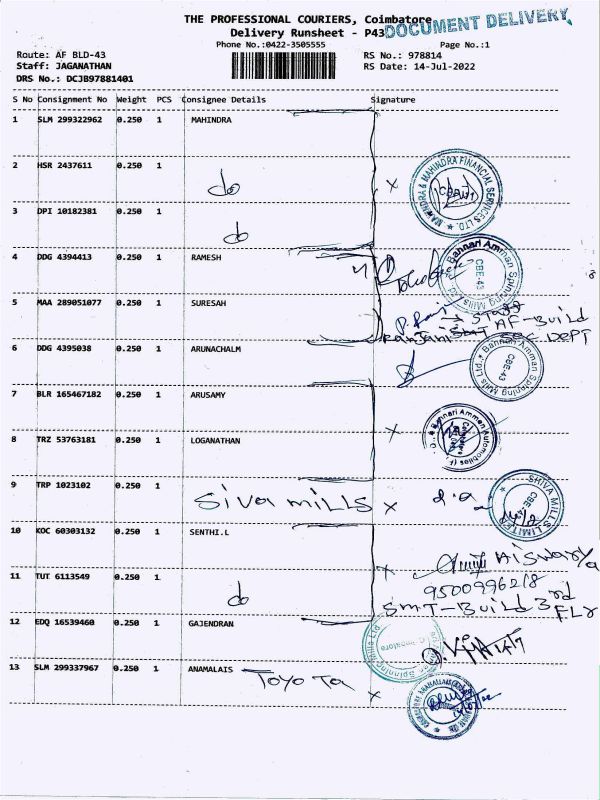 THE PROFESSIONAL COURIERS, Coimbatore
DOCUMENT DELIVERY
Delivery Runsheet - P43
Phone No.:0422-3505555 Page No.:1
Route: AF BLD-43 RS No.: 978814
Staff: JAGANATHAN RS Date: 14-Jul-2022
DRS No.: DCJB97881401
S No Consignment No Weight PCS Consignee Details Signature
1 SLM 299322962 0.250 1 MAHINDRA
2 HSR 2437611 0.250 1 do x
MAHINDRA & MAHINDRA FINANCIAL SERVICES LTD.
3 DPI 10182381 0.250 1 do
4 DDG 4394413 0.250 1 RAMESH
Bannari Amman Spinning Mills Ltd.
CBE-43
5 MAA 289051077 0.250 1 SURESAH
AF-Build
DEPT
6 DDG 4395038 0.250 1 ARUNACHALM
Bannari Amman Spinning Mills Ltd.
CBE-43
7 BLR 165467182 0.250 1 ARUSAMY x
Bannari Amman Automobiles
8 TRZ 53763181 0.250 1 LOGANATHAN
9 TRP 1023102 0.250 1 Siva mills x
SHIVA MILLS LIMITED
CBE
10 KOC 60303132 0.250 1 SENTHI.L
Aiswarya
x
11 TUT 6113549 0.250 1 do
SMT-Build 3rd FLr
12 EDQ 16539460 0.250 1 GAJENDRAN
Spinning Mills Ltd
Coimbatore
13 SLM 299337967 0.250 1 ANAMALAIS Toyo Ta x